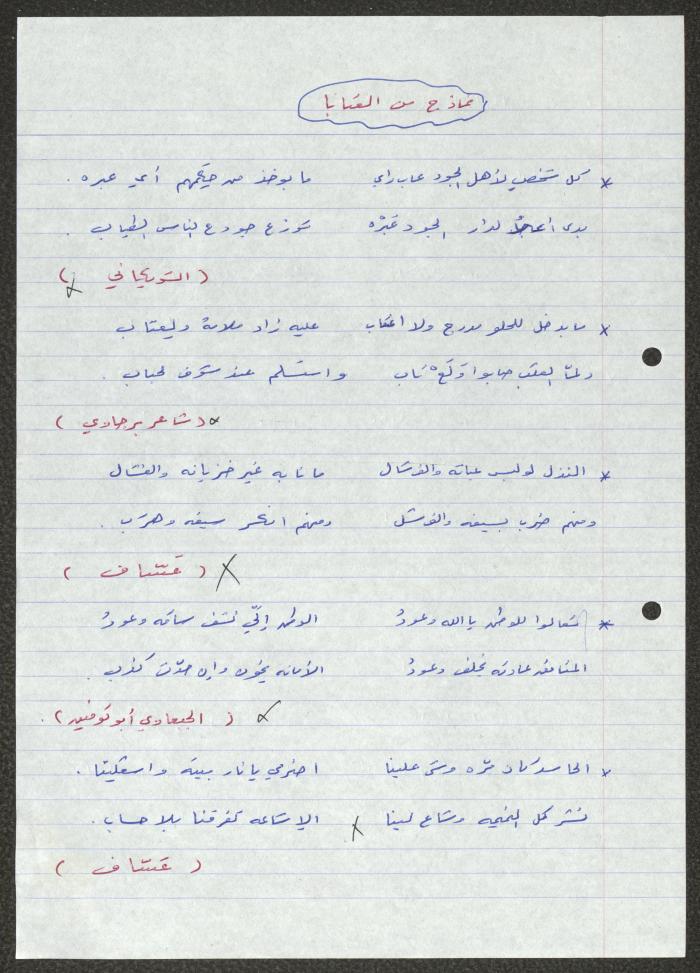 نماذج من العتابا
* كل شخص لأهل الجود عاب راي ما بوخذ من حكيهم أي عبره .
بدي لدار الجود عَبْرْه توزع جود ع الناس الطياب .
( السويحاني )
* ما بدخل للحلو مدرج ولا اعتاب عليه زاد ملامة وليعتاب
ولمّا العقب صابوا وَلَعْ ناب واستسلم عند شوف لحباب .
( شاعر برجاوي )
* النذل لو لبس عباته والوشال ما نابه غير خزيانه والفشال
ومنهم ضرب بسيفه والفشل ومنهم انكسر سيفه وهرب .
( عتّاف )
* تعالوا للوطن يا الله وعودُ الوطن إلّي نشف ساقه وعودُ
المنافق عادته يخلف وعودُ الأمانه يخون وإن حدّث كذب .
( الجبعاوي أبو توفيق ) .
* الحاسد كمان مرّه وشى علينا اضرمي يا نار بيته واشعليتا .
نشر كل النميمه وشاع لينا الاشاعه تفرقنا بلا حساب .
( عتّاف )